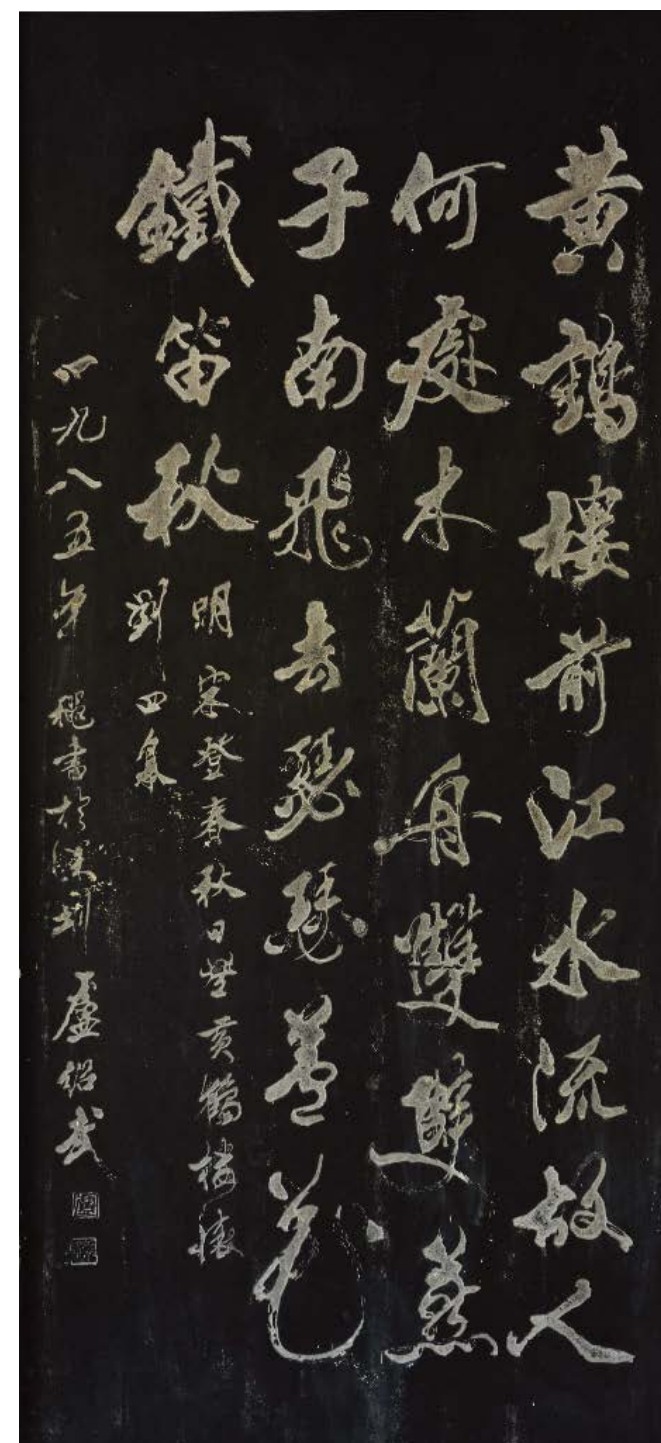 黄鶴樓前江水流故人
何處木蘭舟雙雙燕
子南飛去瑟瑟蘆花
鐵笛秋
明宋登春秋日登黄鶴樓懷
劉四
一九八五年 穐書於深圳 盧紹武